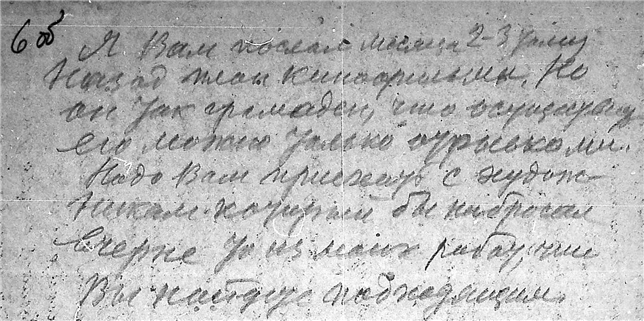 6 об Я Вам послал месяца 2-3 тому
назад план кинофильмы. Но
он так громаден, что осуществ
его можно только отрывками.
Надо Вам приехать с худож-
никам который бы набросал
вчерне то из моих работ, что
Вы найдете подходящим.